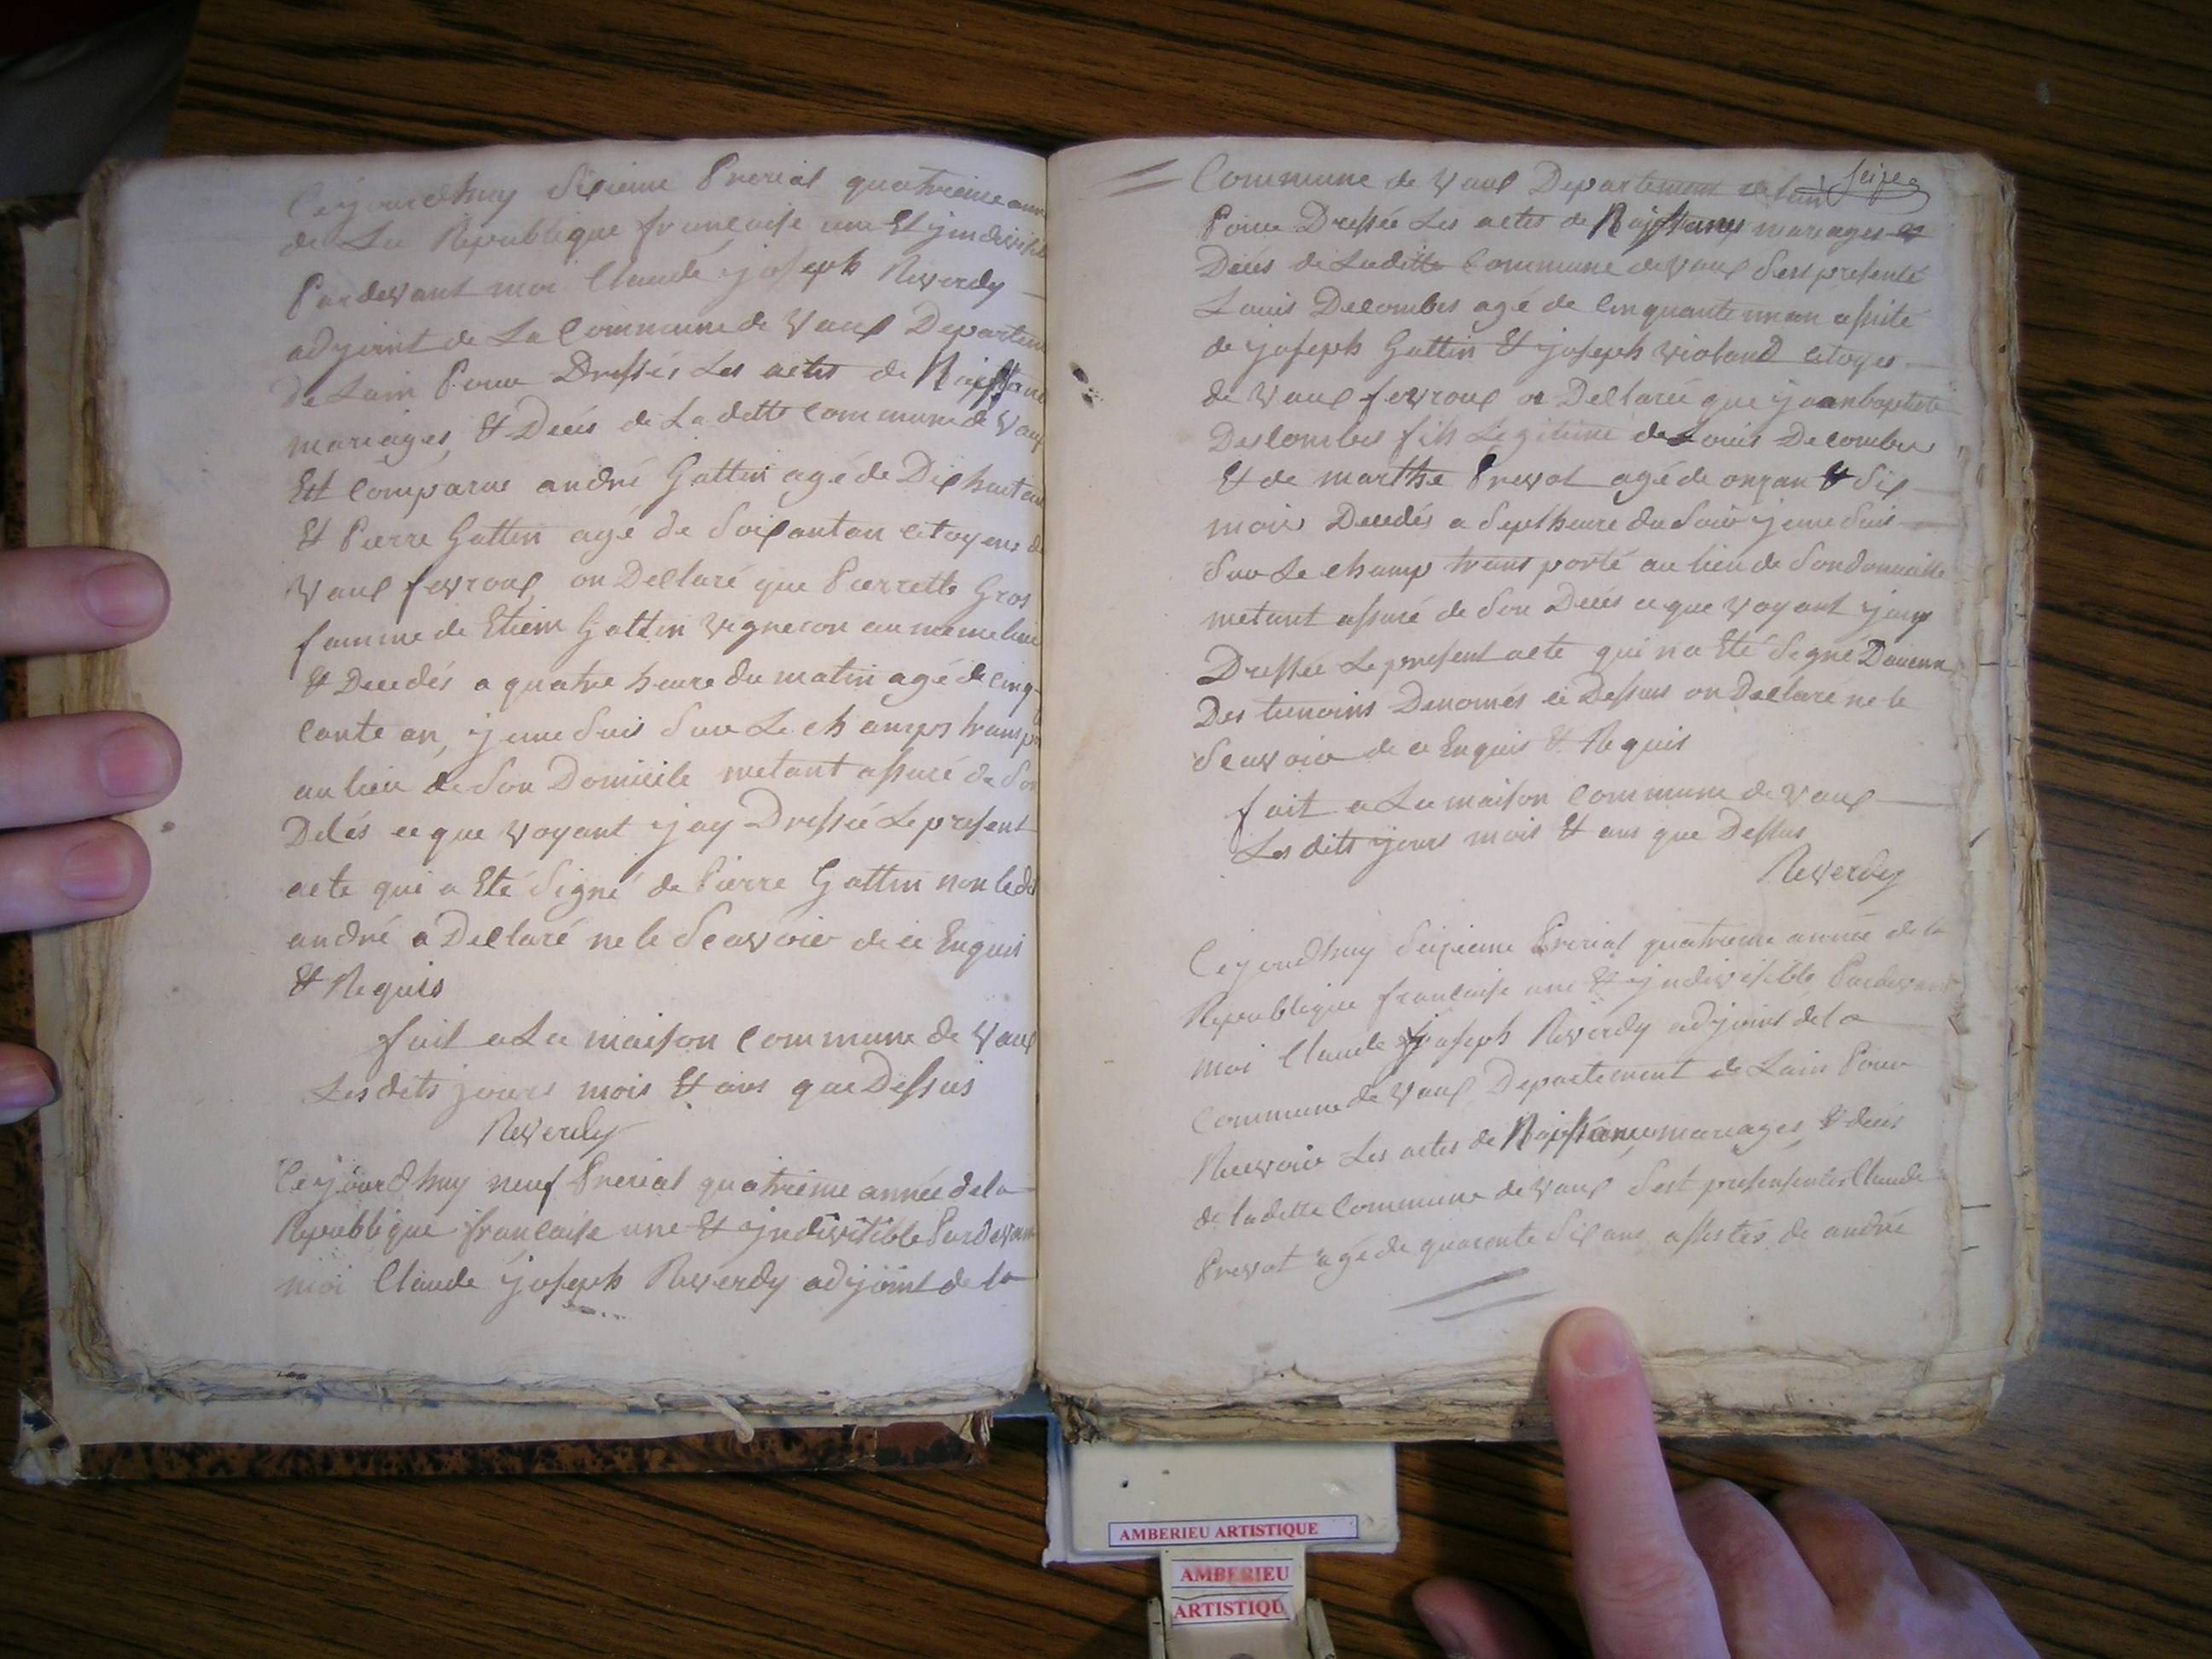 Cejourdhuy Sixieme Prerial quatrieme anné
de La Republique francaise une Et yndivisib
Pardevant moi Claude joseph Reverdy
adjoint de La Commune de Vaux Departem
De Lain Pour Dressés Les actes de Naissanc
mariages, & Decés de La ditte Commune de Vaux
Est Comparue andré Gattin agé de Dix huit an
& Pierre Gattin agé de Soixantan citoyens de
Vaux fevroux on Declaré que Pierrette Gros
famme de Etiein Gattin Vigneron au meme lieu
& Decedés a quatre heure du matin agé de Cinq
cante an, je me Suis Sur Le champs transpo
au lieu de Son Domicile metant assuré de Son
Decés ce que voyant jay Dressée Le present
acte qui a Eté Signé de Pierre Gattin non ledit
andré a Declaré ne le Scavoir de ce Enquis
& Requis
fait a La maison Commune de Vaux
Les dits jours mois & ans que Dessus
Reverdy
Cejourdhuy neuf Prerial quatrieme année de la
Republique francaise une & yndivisible Pardevan
moi Claude joseph Reverdy adjoint de la
Commune de Vaux Departement de Lain
Seize
Pour Dressée Les actes de Naissances mariages &
Decés de Laditte Commune de Vaux Sest presenté
Louis Decombes agé de Cinquante un an assité
de joseph Gattin & joseph Violand citoyes
de Vaux fevroux on Declarée que jeanbaptiste
Descombes fils Legitime de Louis Decombes
& de marthe Prevot agé de onzan & Six
mois Decedés a Sept heure du Soir je me Suis
Sur Le champ transporté au lieu de Son domicille
metant assuré de Son Decés ce que voyant jay
Dressée Le present acte qui na Eté Signé Daucun
Des temoins Denomés ci Dessus on Declaré ne le
Scavoir de ce Enquis & Requis
fait a La maison Commune de Vaux
Les dits jours mois & ans que Dessus
Reverdy
Cejourdhuy Seizieme Prerial quatrieme année de la
Republique francaise une & yndivisible Pardevant
moi Claude joseph Reverdy adjoint de la
Commune de Vaux Departement de Lain Pour
Recevoir Les actes de Naissance, mariages, & decés
de ladette Commune de Vaux Sest presensentés Claude
Prevot agé de quarente Six ans assistés de andré
AMBERIEU ARTISTIQUE
AMBERIEU
ARTISTIQU